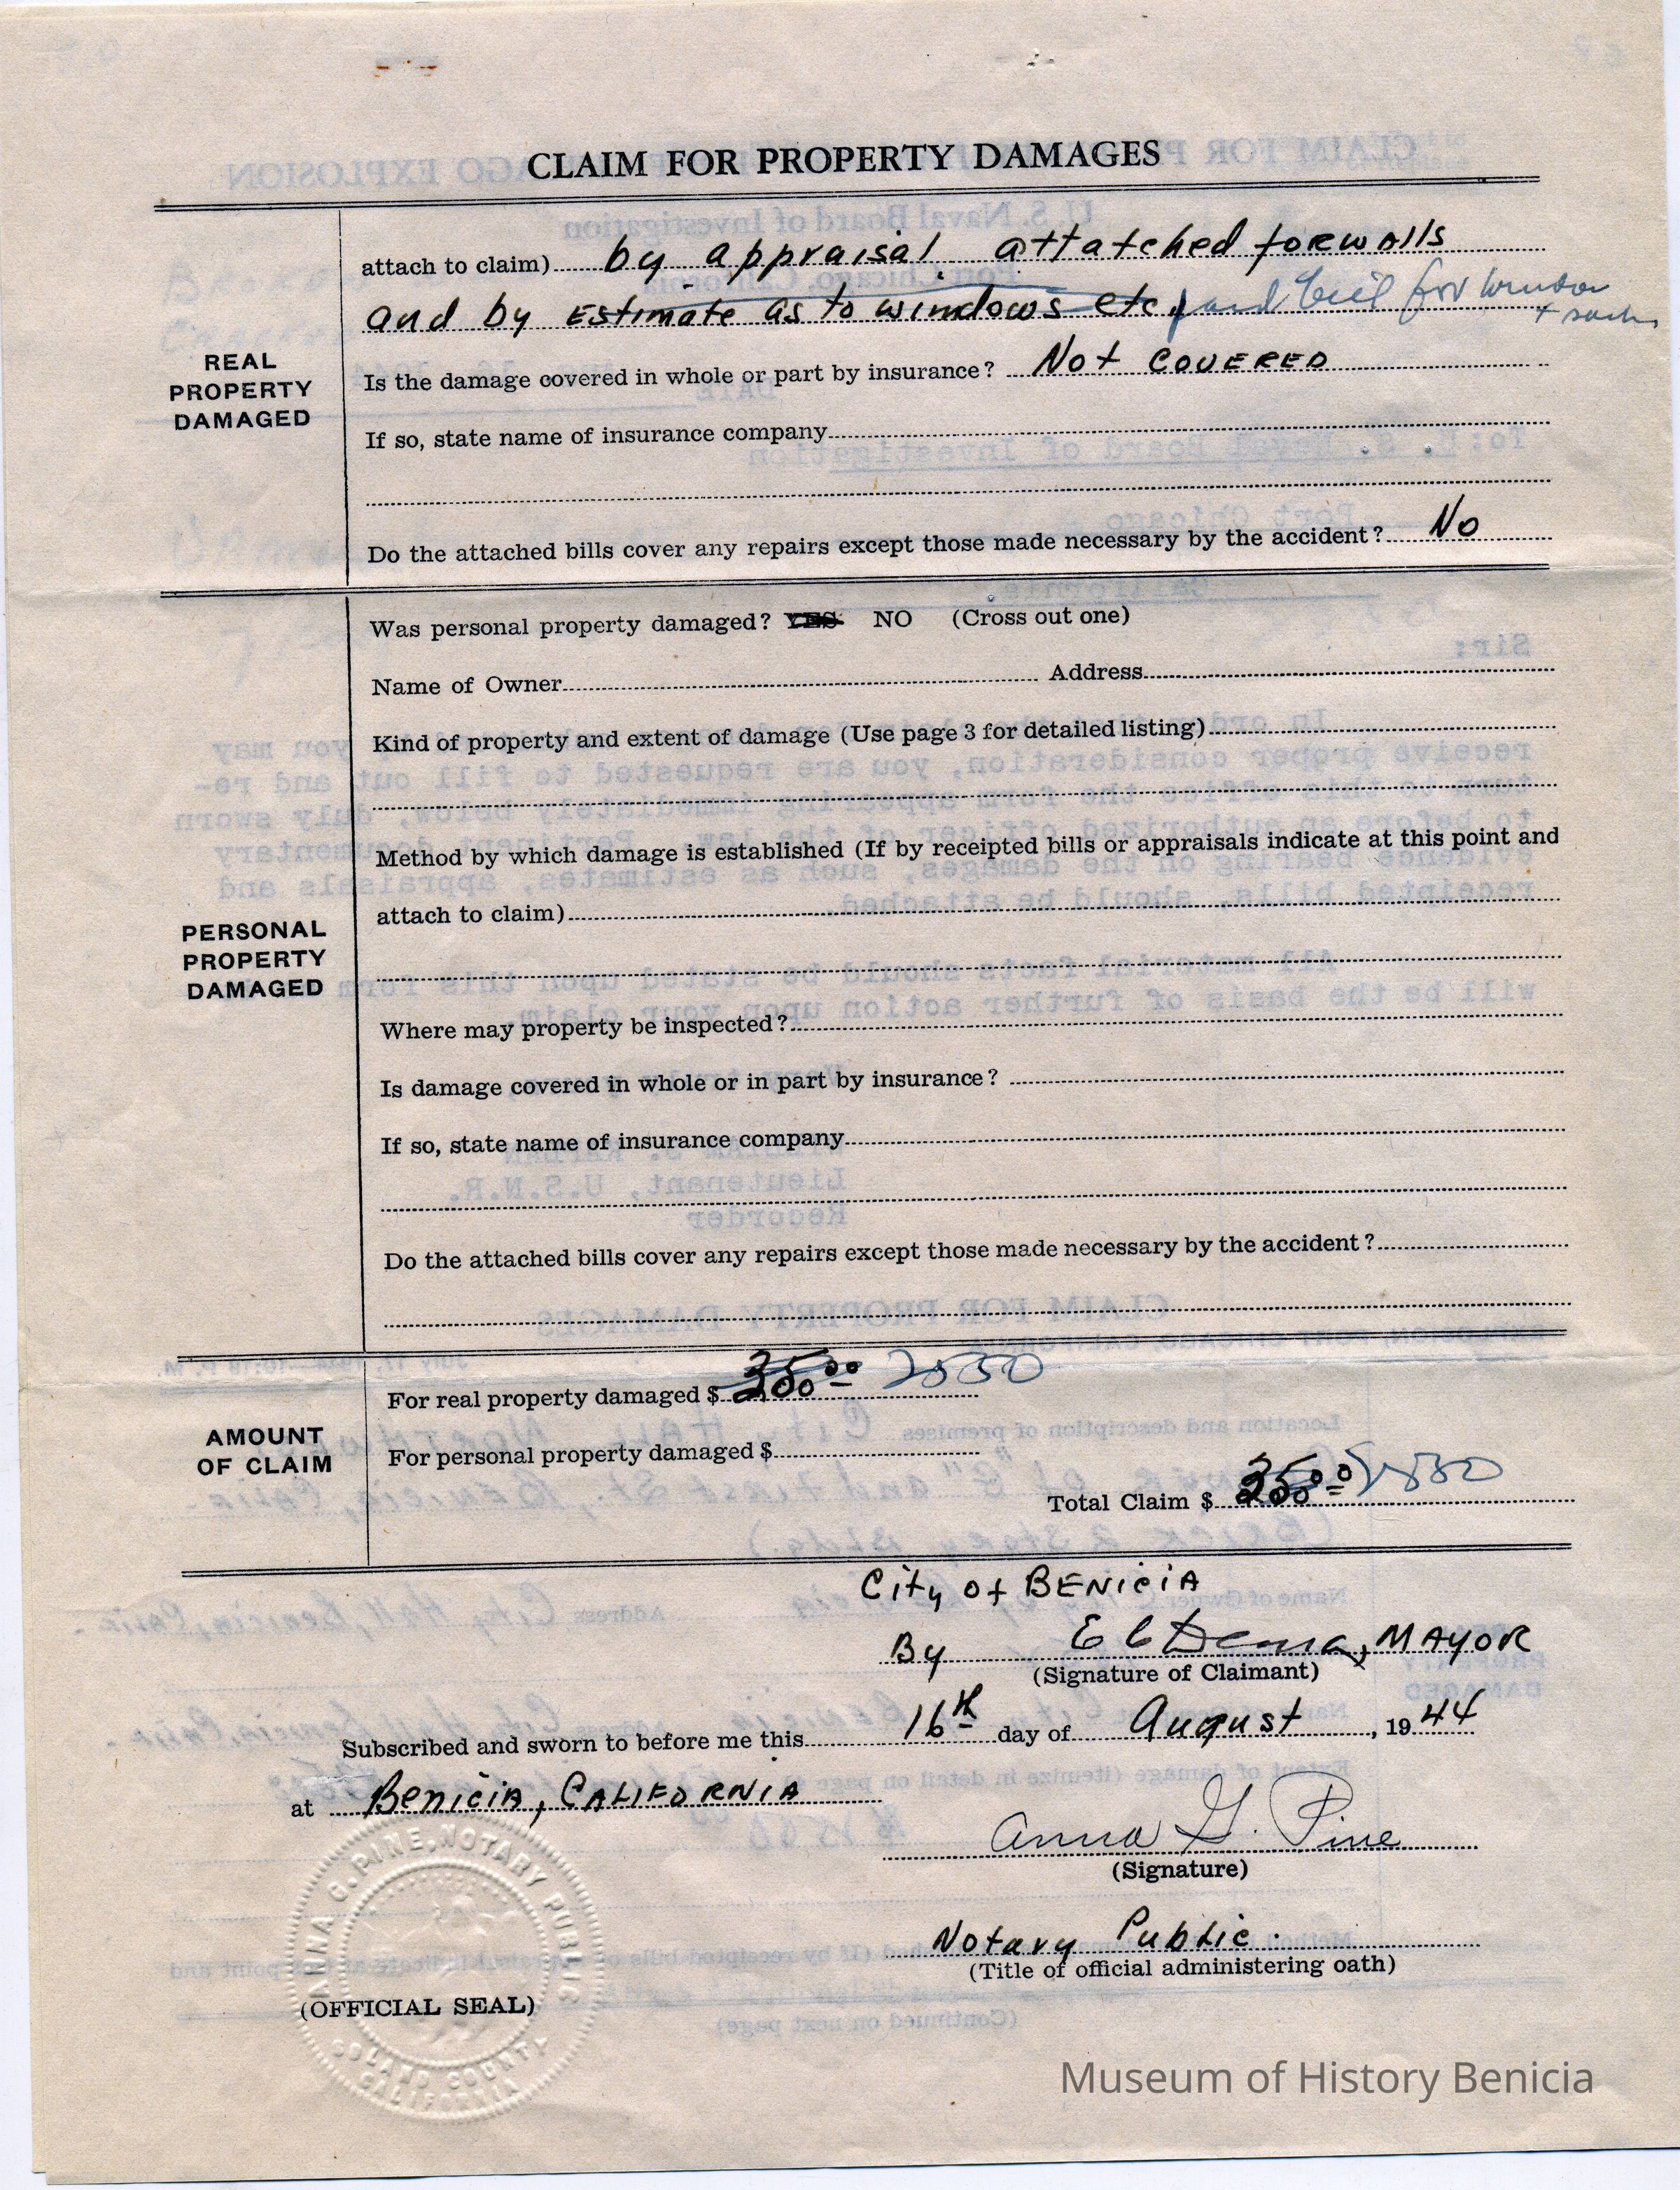 CLAIM FOR PROPERTY DAMAGES
REAL PROPERTY DAMAGED
attach to claim) by appraisal attatched for walls
and by Estimate as to windows etc, and bill for window
+ sash
Is the damage covered in whole or part by insurance? Not COVERED
If so, state name of insurance company
Do the attached bills cover any repairs except those made necessary by the accident? No
PERSONAL PROPERTY DAMAGED
Was personal property damaged? YES NO (Cross out one)
Name of Owner Address
Kind of property and extent of damage (Use page 3 for detailed listing)
Method by which damage is established (If by receipted bills or appraisals indicate at this point and
attach to claim)
Where may property be inspected?
Is damage covered in whole or in part by insurance?
If so, state name of insurance company
Do the attached bills cover any repairs except those made necessary by the accident?
AMOUNT OF CLAIM
For real property damaged $
For personal property damaged $
Total Claim $
City of BENICIA
By E C MAYOR
(Signature of Claimant)
Subscribed and sworn to before me this 16th day of August, 1944
at Benicia, CALIFORNIA
Anna G. Pine
(Signature)
Notary Public.
(Title of official administering oath)
ANNA G. PINE, NOTARY PUBLIC
SOLANO COUNTY
CALIFORNIA
(OFFICIAL SEAL)
Museum of History Benicia